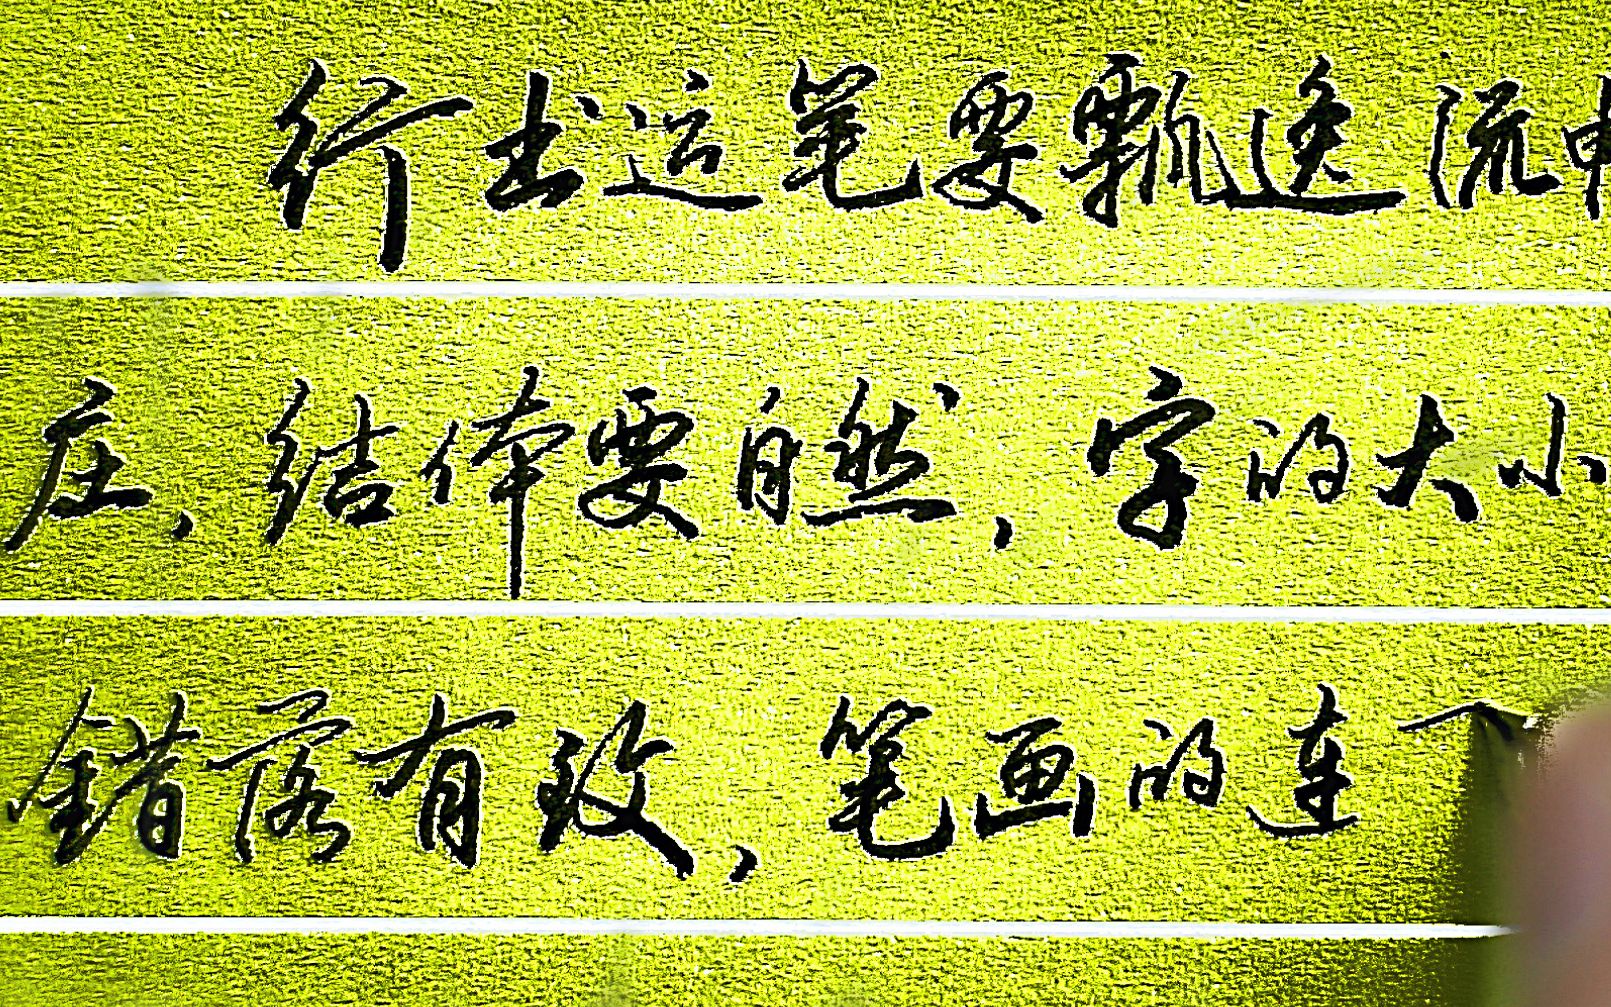 行书运笔要飘逸流
庄,结体要自然,字的大小
错落有致,笔画的连